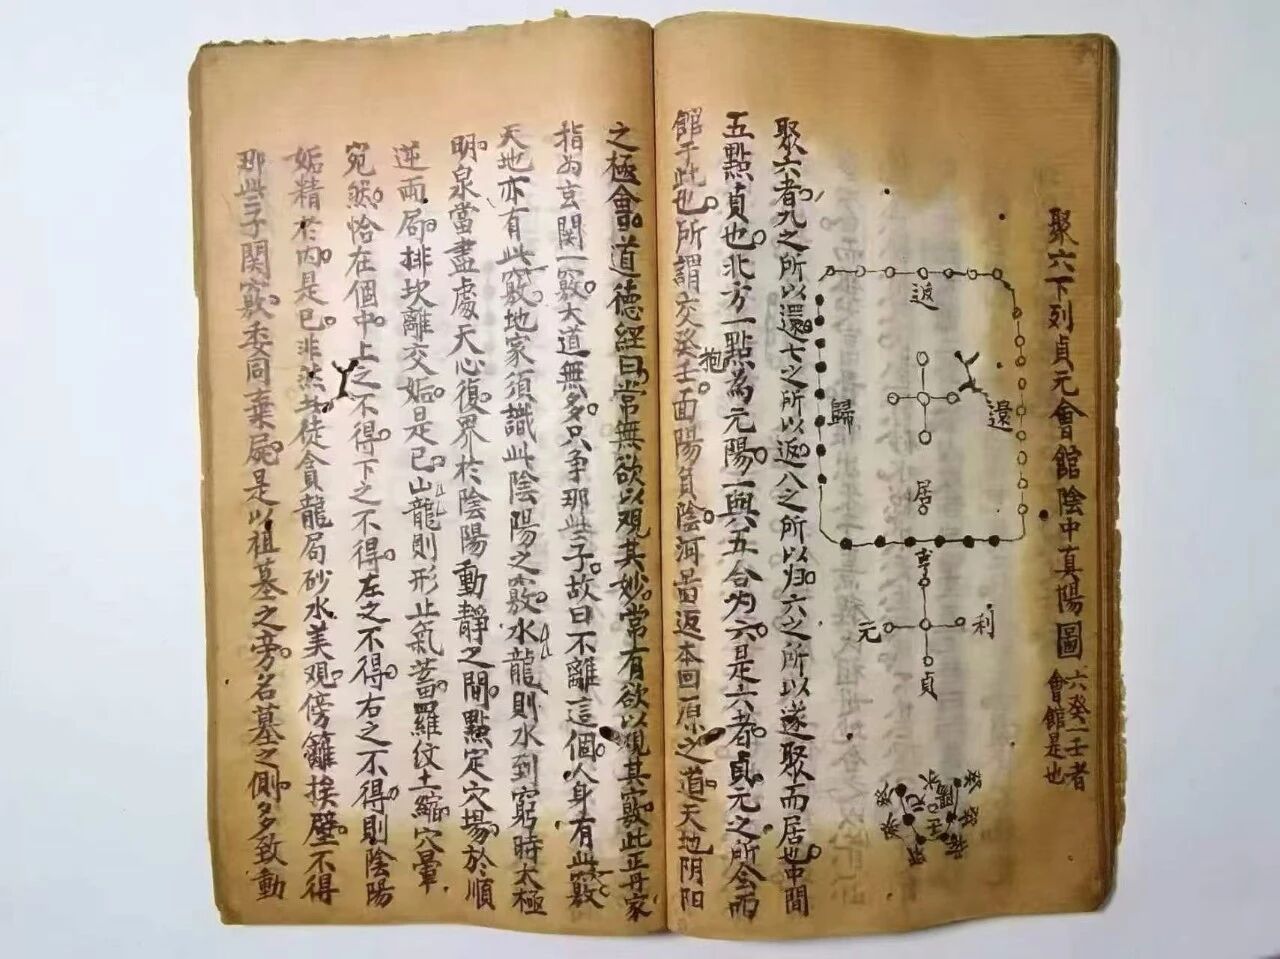 聚六下列貞元會館陰中真陽圖
六癸一壬者
會館是也
返
還
歸
居
亨
元
利
貞
癸
癸
癸
癸
癸
陽水
元
壬
聚六者九之所以還七之所以返八之所以归六之所以遂聚而居也中間
五點貞也北方一點為元陽一與五合为六是六者貞元之所会而
館于此也所謂交癸壬抱面陽負陰洞畐返本回原之道天地阴阳
之極會道德經曰常無欲以观其妙常有欲以观其竅此正丹家
指为玄関一竅大道無多只争那些子故曰不離這個人身有此竅
天地亦有此竅地家須識此陰陽之竅水龍則水到窮時太極
明泉當盡處天心復界於陰陽動靜之間點定穴場於順
逆兩局排坎離交姤是已山龍則形止氣蓄羅纹土縮穴暈
宛然恰在個中上之不得下之不得左之不得右之不得則陰陽
姤精於内是已非然此徒貪龍局砂水美观傍籬挨壁不得
那些子関竅委同棄屍是以祖墓之旁名墓之側多致動